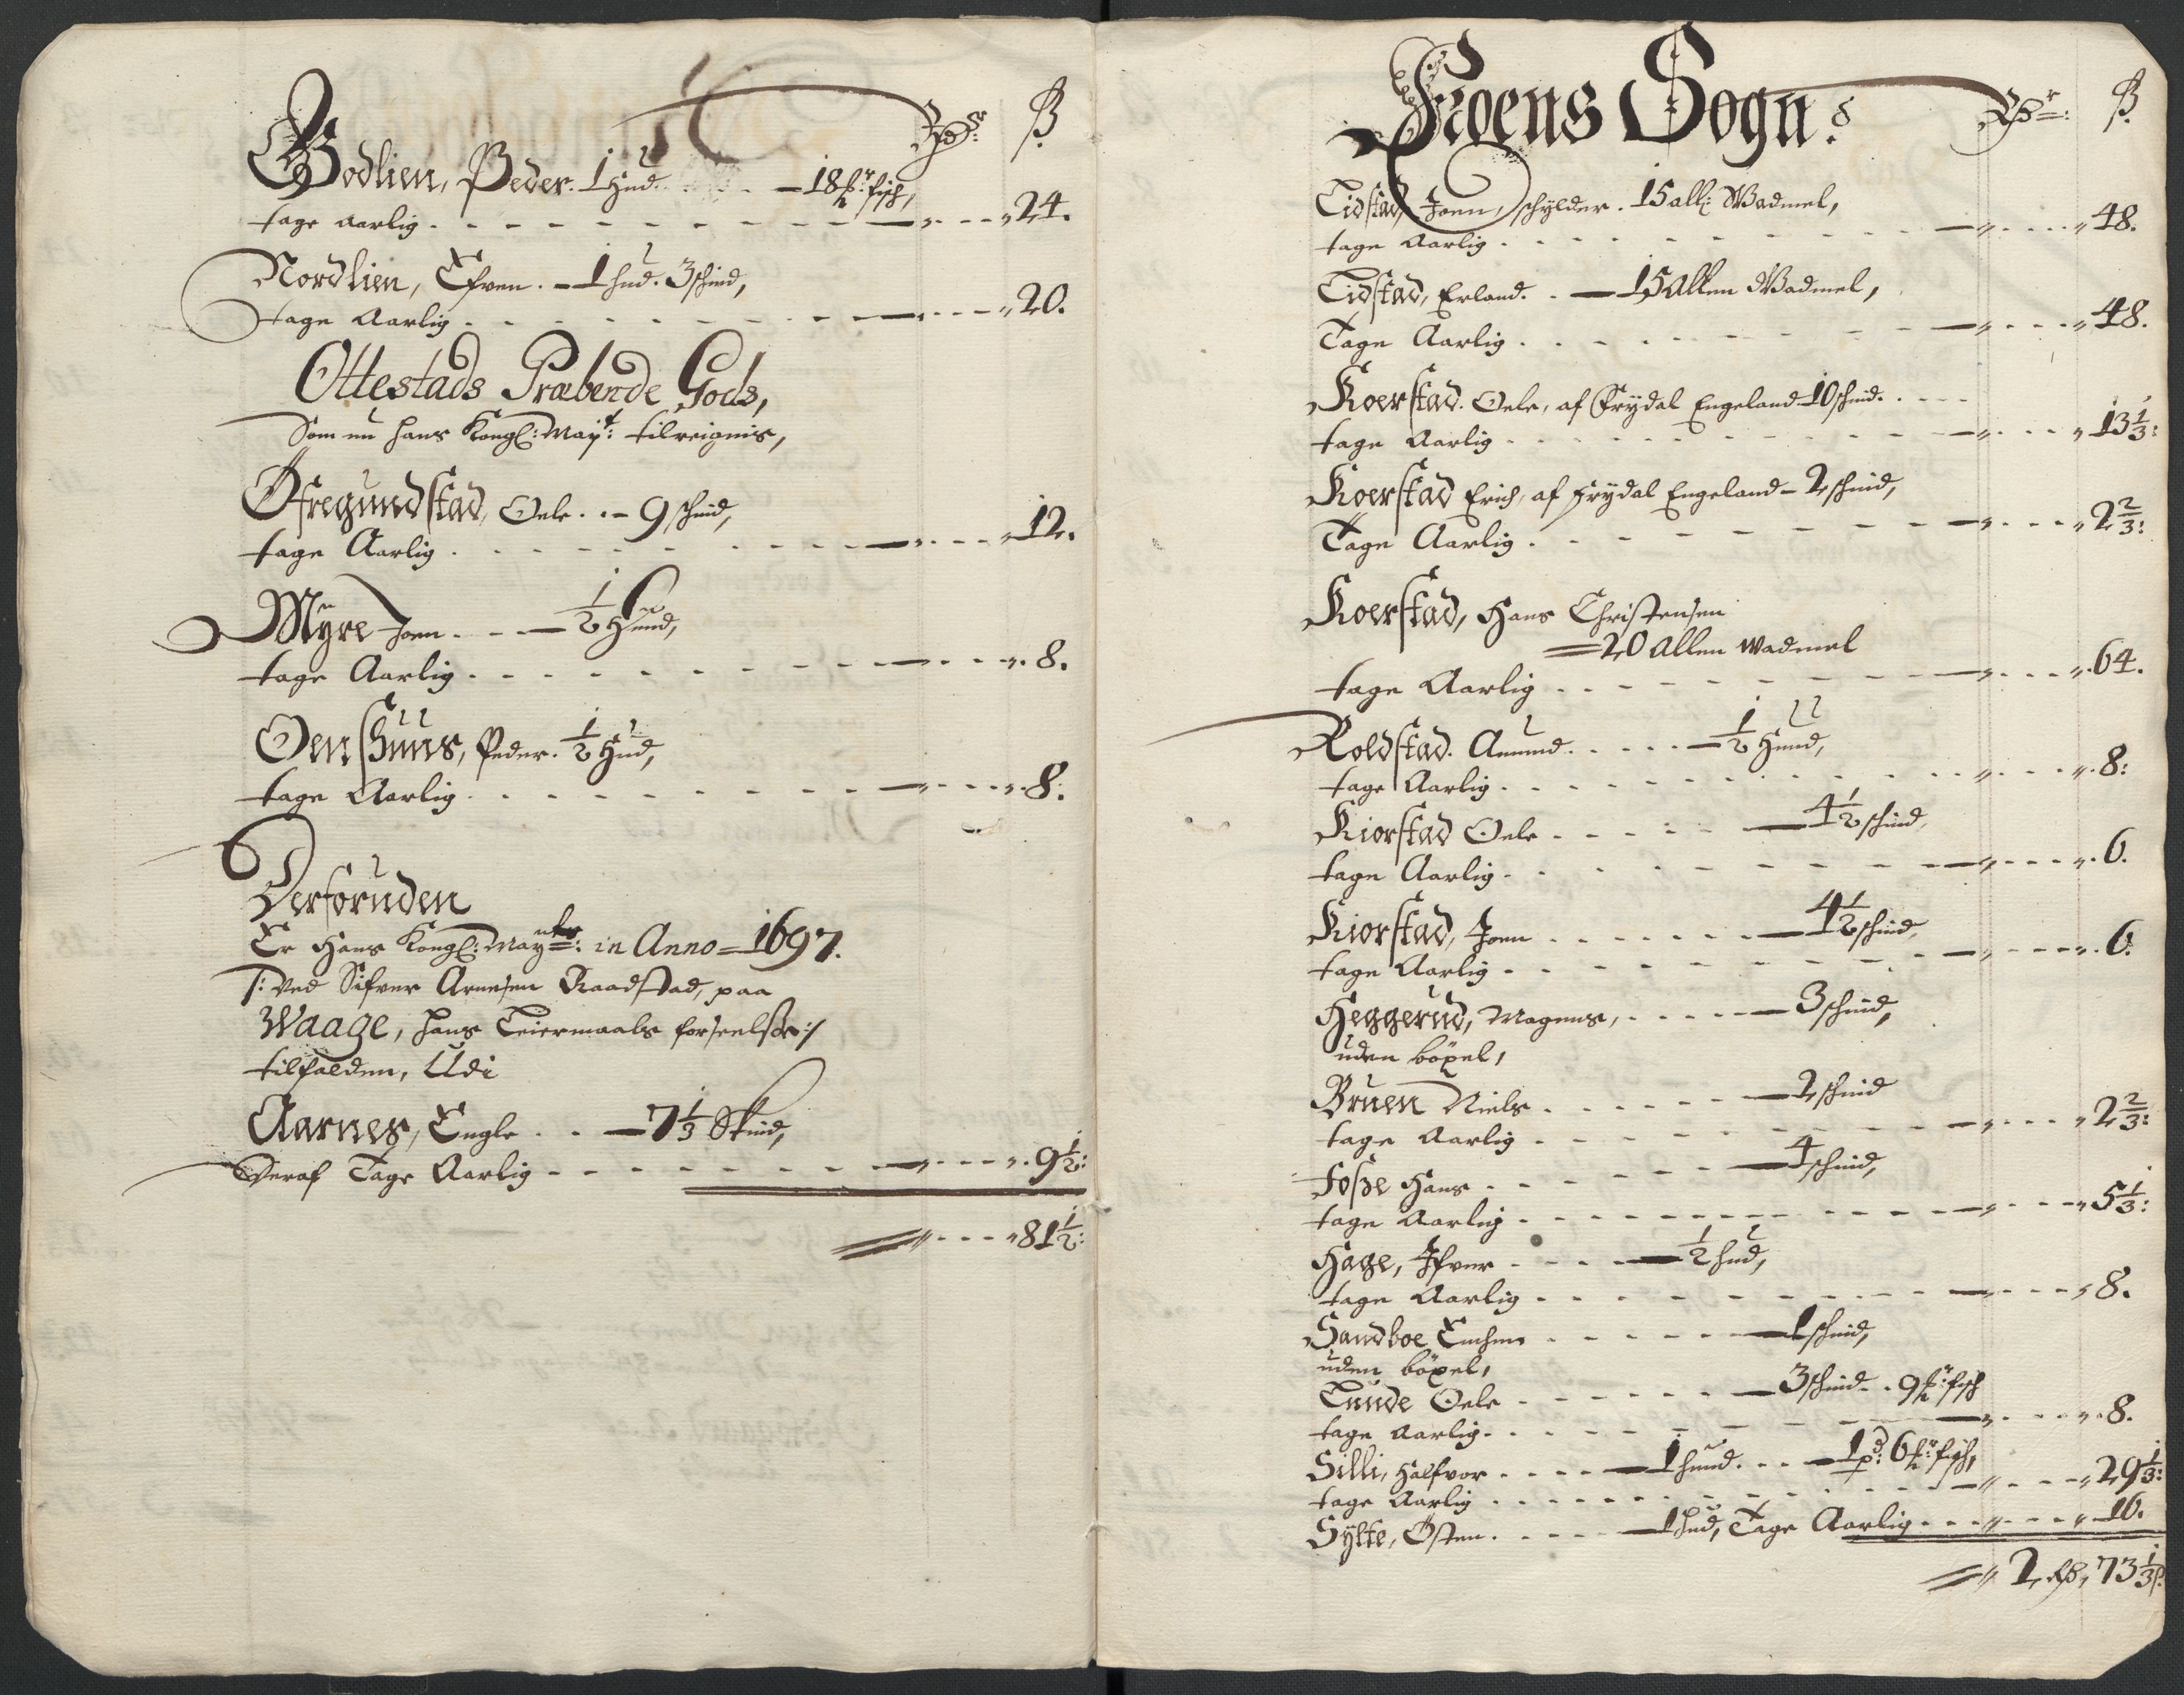 Rdr: ß
Godlien, Peder. 1 Hud. - 18 fisch,
tage aarlig - - - 24.
Nordlien, Efven. - 1 hud. 3 schind,
tage Aarlig - - - 20.
Ottestads Præbende Gods,
Som nu hans Kongl: Mayt: tilreignis,
Øfregundstad, Oele. - 9 schind,
tage Aarlig - - - 12.
Myre Joen - - 1/2 Hund,
tage Aarlig - - - 8.
Oenshuus, Peder. 1/2 Hud,
tage Aarlig - - - 8.
Derforuden
Er Hans Kongl: May: in Anno = 1697.
/: ved Sifver Arnesen Raadstad, paa
Waage, hans Leiermaals forseelse :/
tilfalden, Udi
Aarnes, Engle - - 7 1/3 Skind,
Deraf Tage Aarlig - - - 9 1/2:
81 1/2:
Froens Sogn: Rdr: ß.
Tidstad, Joen, schylder. 15 all: Wadmel,
tage Aarlig - - - 48.
Tidstad, Erland. - 15 Allen Wadmel,
Tage Aarlig - - - 48.
Koerstad. Oele, af Frydal Engeland 10 schind.
tage Aarlig - - - 13 1/3:
Koerstad Erich, af Frydal Engeland - 2 schind,
Tage Aarlig - - - 2 2/3:
Koerstad, Hans Christensen
= 20 Allen wadmel
tage Aarlig - - - 64.
Roldstad. Amund. - - 1/2 Hund,
tage Aarlig - - - 8:
Kiorstad Oele - - 4 1/2 schind,
tage Aarlig - - - 6.
Kiorstad, Joen - - 4 1/2 schind,
tage Aarlig - - - 6.
Heggerud, Magnus, - - 3 schind,
uden böxel,
Bruen Niels - - 2 schind
tage Aarlig - - - 2 2/3:
Fosse Hans - - 4 schind,
tage Aarlig - - - 5 1/3:
Hage, Ifver - - 1/2 hud,
tage Aarlig - - - 8.
Sandboe - - 1 schind,
uden böxel,
Tunde Oele - - 3 schind. 9 fisch
tage Aarlig - - - 8.
Silli, Halfvor - - 1 hund. - - 1 pd: 6 fisch,
tage Aarlig - - - 29 1/3:
Sylte, Östen. - - 1 hud, Tage Aarlig - - - 16.
2 Rd, 73 1/3 ß.